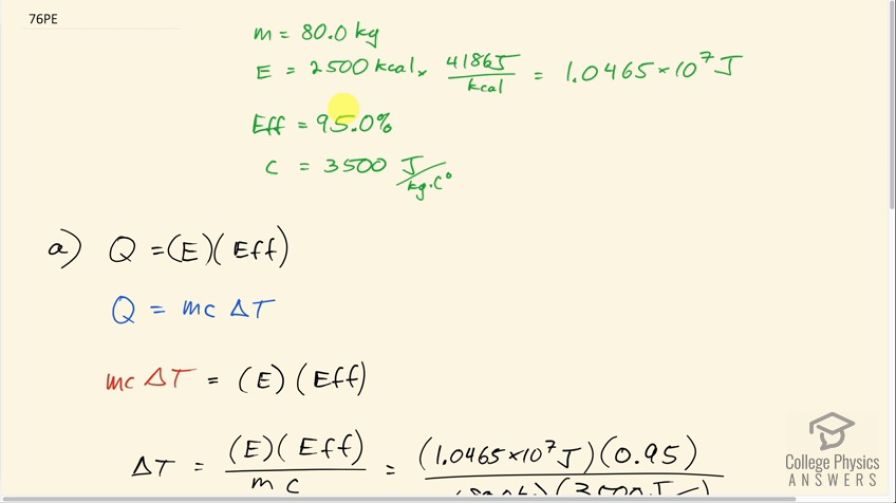 76PE
m = 80.0 kg
E = 2500 kcal × 4186J/kcal = 1.0465×10⁷ J
Eff = 95.0%
c = 3500 J/kg·C°
a) Q = (E)(Eff)
Q = mc ΔT
mc ΔT = (E)(Eff)
ΔT = (E)(Eff)/mc = (1.0465×10⁷ J)(0.95)
College Physics
ANSWERS